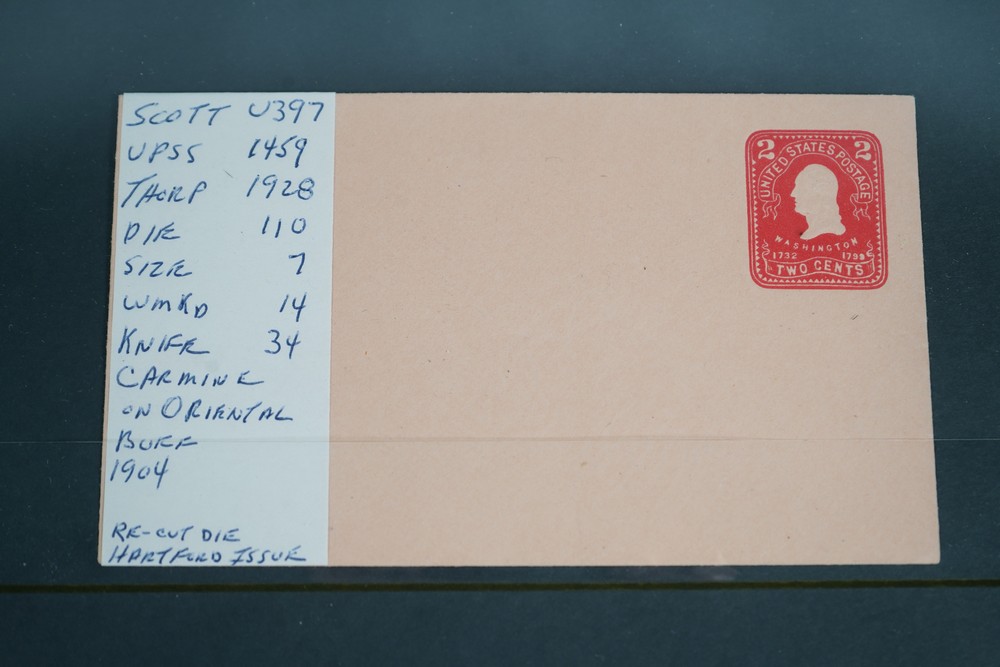 SCOTT U397
UPSS 1459
THORP 1928
DIE 110
SIZE 7
WMKD 14
KNIFE 34
CARMINE
ON ORIENTAL
BUFF
1904
RE-CUT DIE
HARTFORD ISSUE
2 2
UNITED STATES POSTAGE
WASHINGTON
1732 1799
TWO CENTS